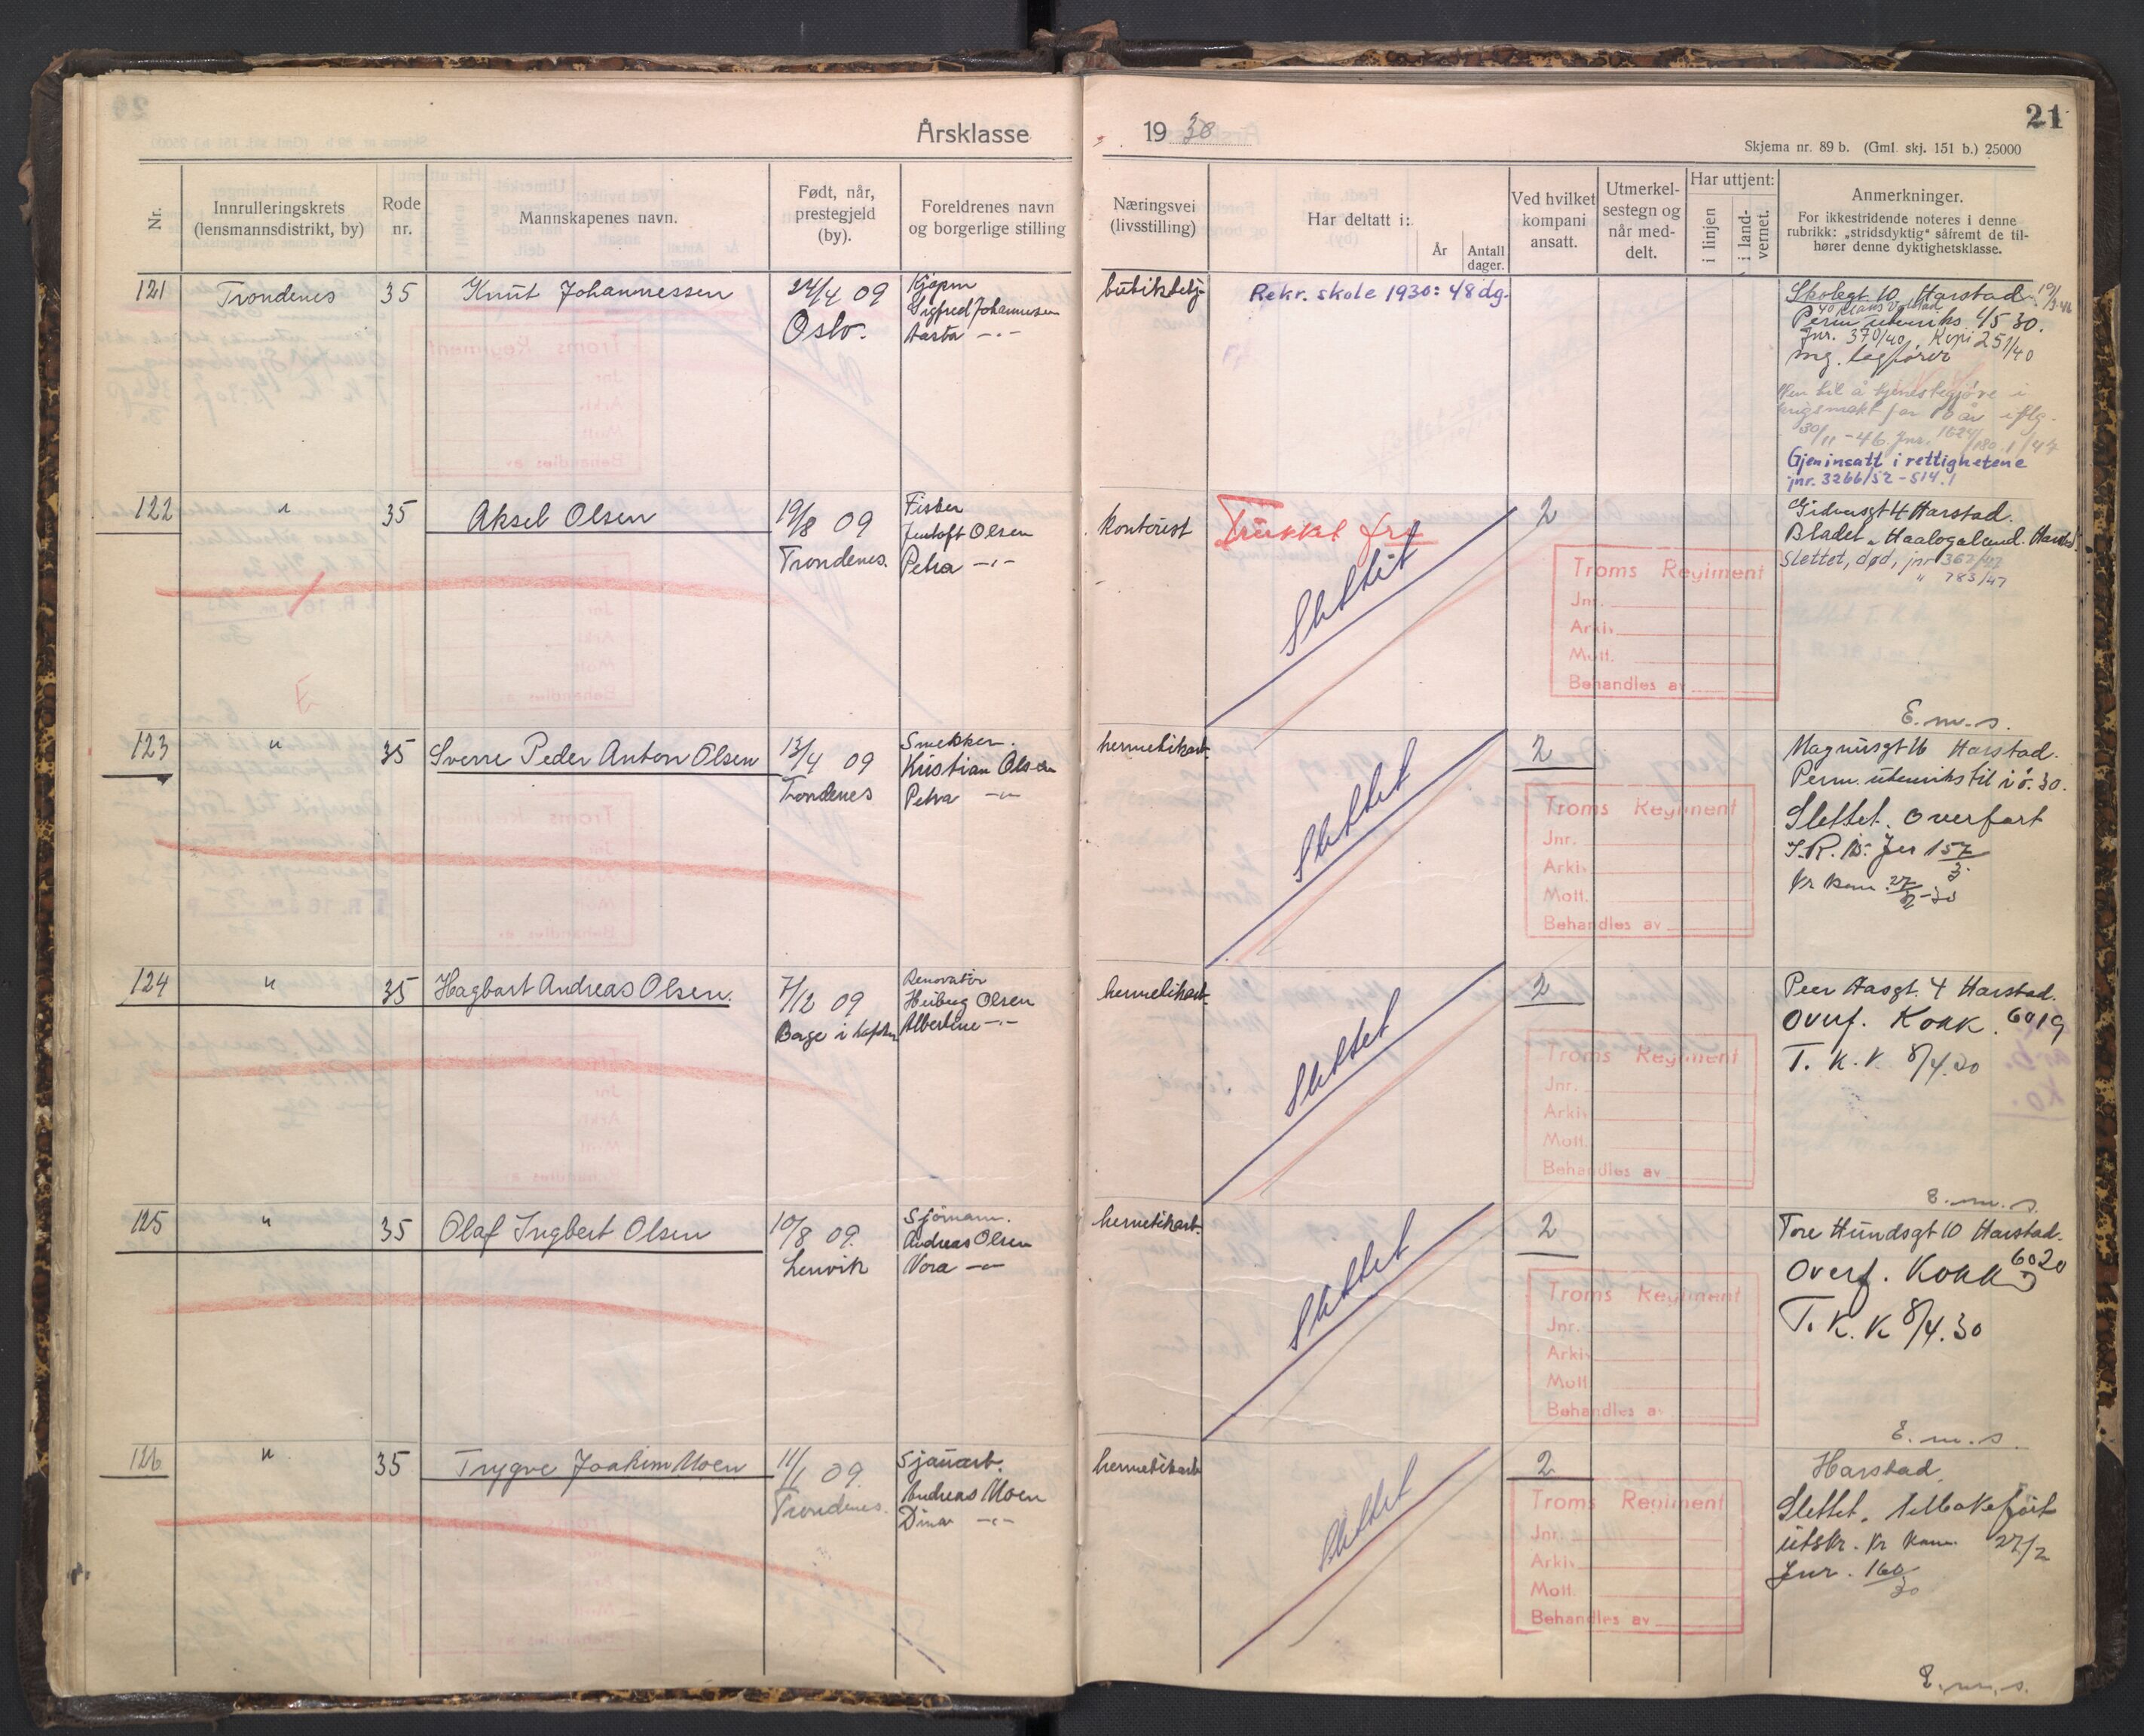 Årsklasse 1930
21
Skjema nr. 89 b. (Gml. skj. 151 b.) 25000
Nr.
Innrulleringskrets (lensmannsdistrikt, by)
Rode nr.
Mannskapenes navn.
Født, når, prestegjeld (by).
Foreldrenes navn og borgerlige stilling
Næringsvei (livsstilling)
Har deltatt i:
År
Antall dager.
Ved hvilket kompani ansatt.
Utmerkelsestegn og når meddelt.
Har uttjent:
i linjen
i landvernet.
Anmerkninger.
For ikkestridende noteres i denne rubrikk: „stridsdyktig" såfremt de tilhører denne dyktighetsklasse.
121 Trondenes 35 Knut Johannessen 24/4 09
Oslo.
Kjøpm
Sigfred Johannessen
Aasta —"—
butikbetj.
Rekr. skole 1930: 48 dg.
Skolegt 10 Harstad
Perm utenriks 4/5 30.
Jnr. 370/40 Kopi 251/40
mg. legfører
til å tjenestegjøre i
krigsmakt for 10 år iflg.
30/11 - 46. Jnr.
Gjeninsatt i rettighetene
jnr. 3266/52 - 514.1
122 " 35 Aksel Olsen 19/8 09
Trondenes.
Fisker
Jentoft Olsen
Petra —"—
kontorist
Trukket fri
Slettet
2
Troms Regiment
Jnr.
Arkiv
Mott.
Behandles av
4 Harstad.
Bladet „Haalogaland. Harstad.
Slettet, død, jnr 367/47
" 783/47
E
E.m.s.
123 " 35 Sverre Peder Anton Olsen 13/4 09
Trondenes
Snekker.
Kristian Olsen
Petra —"—
hermetikarb.
Slettet
2
Troms Regiment
Jnr.
Arkiv
Mott.
Behandles av
Magnusgt 16 Harstad.
Perm. utenriks til
Slettet. Overført
I.R. 15. Jnr 157
Kr kom 27/2-30
124 " 35 Hagbart Andreas Olsen. 7/12 09
Renovatør
Heiberg Olsen
Albertine —"—
hermetikarb.
Slettet
2
Troms Regiment
Jnr.
Arkiv
Mott.
Behandles av
Peer Aasgt. 4 Harstad.
Overf. Kokk. 6019
T. K. K. 8/4.30
E.m.s.
125 " 35 Olaf Ingbert Olsen 10/8 09.
Lenvik
Sjömann.
Andreas Olsen
Nora —"—
hermetikarb.
Slettet
2
Troms Regiment
Jnr.
Arkiv
Mott.
Behandles av
Tore Hundsgt 10 Harstad.
Overf. Kokk 6020
T. K. K 8/4.30
E.m.s.
126 " 35 Trygve Joakim Moen 11/1 09.
Trondenes.
Sjauarb.
Andreas Moen
Dina —"—
hermetikarb
Slettet
2
Troms Regiment
Jnr.
Arkiv
Mott.
Behandles av
Harstad
Slettet. tilbakeført
utskr. Kr kom. 27/2
Jnr. 160/30
E.m.s.